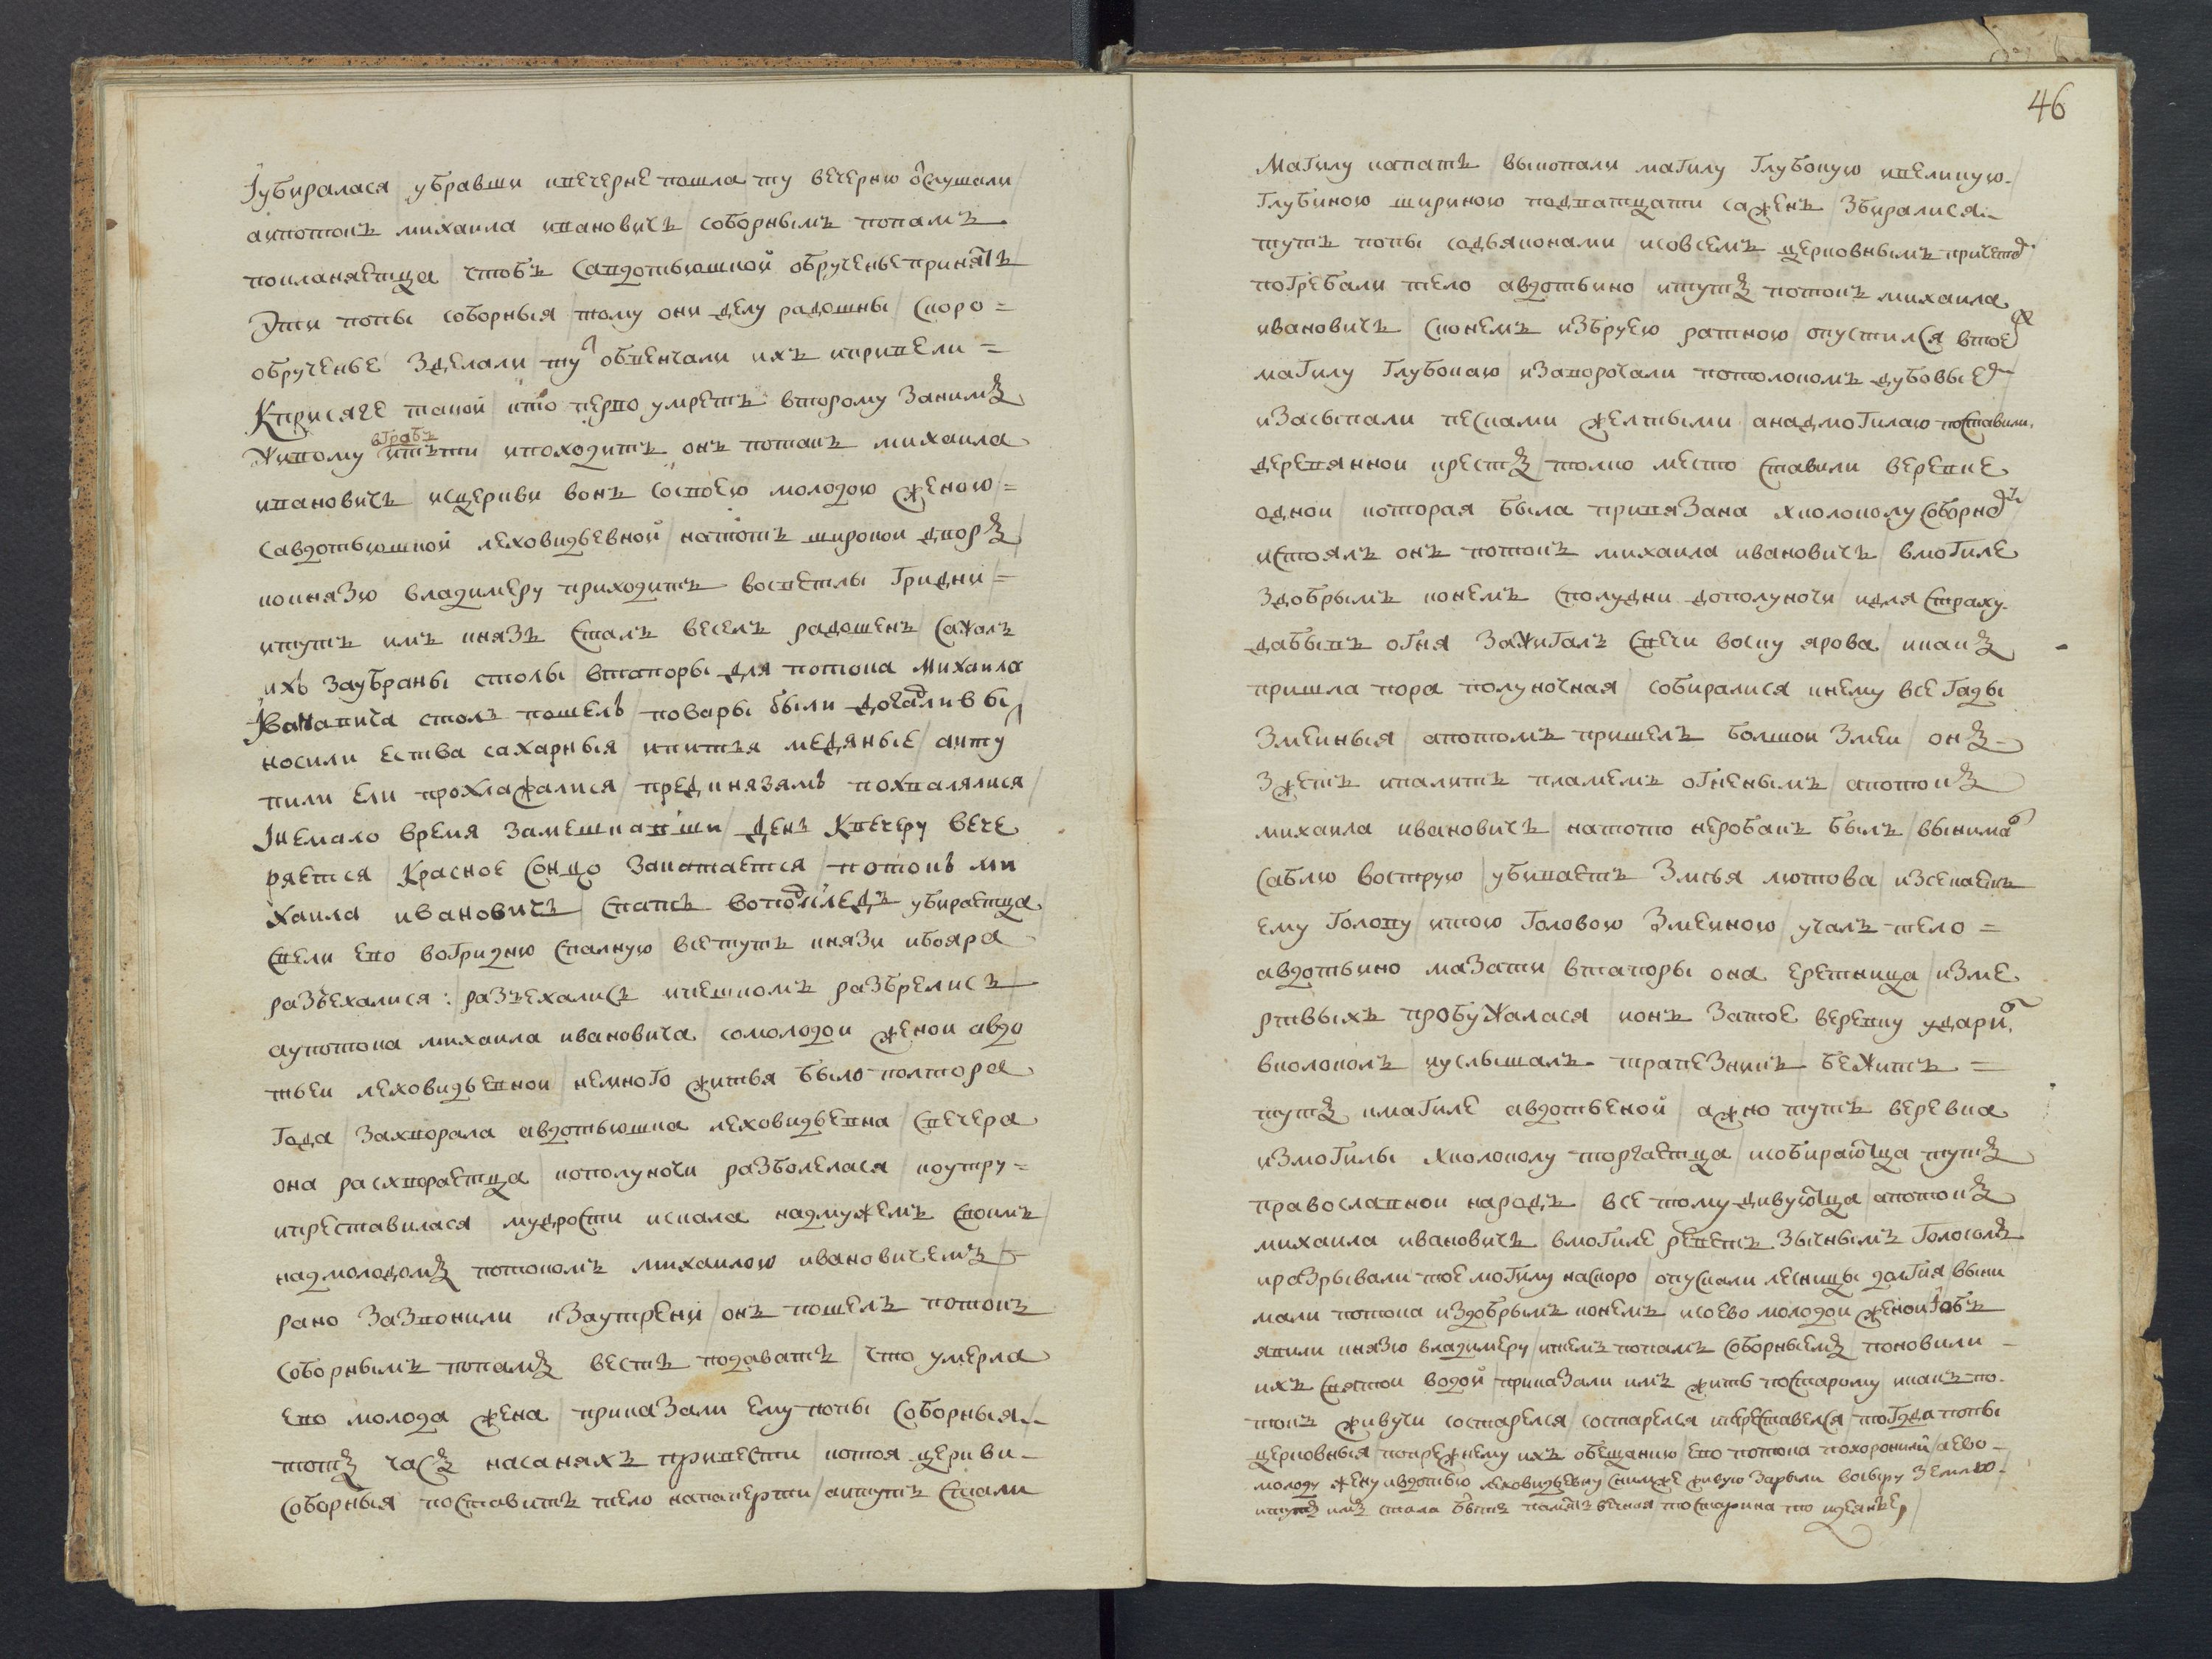 Јубиралася убравши квечерне пошла ту вечерню ѿслушали
аипотокъ михаила ивановичь соборнымъ попамъ
покланяетца чтобъ савдотьюшкой обрученье принять
Эти попы соборныя тому они делу радошны скоро =
обрученье зделали ту обвенчали ихъ ипривели =
Кприсяге такой кто перво умретъ второму занимъ
вгробъ
живому итъти ипоходитъ онъ потакъ михаила
ивановичь исцеркви вонъ сосвоею молодою женою =
савдотьюшкой леховидьевной натотъ широкои дворъ
кокнязю владимеру приходитъ восветлы гридни =
итутъ имъ князь сталъ веселъ радошенъ сажалъ
ихъ заубраны столы втапоры для потока михаила
Јвановича столъ пошелъ повары были догадливы
носили ества сахарныя ипитья медяные аиту
пили ели прохлажалися предкнязямъ похвалялися
Јнемало время замешкавши день Квечеру вече
ряется Красное сонцо закатается потокъ ми
хаила ивановичь спать воподкледъ убираетца
свели ево вогридню спалную все тутъ князи ибояра
разъехалися: разъехались ипешкомъ разбрелись
аупотока михаила ивановича сомолодои женои авдо
тьеи леховидьевнои немного житья было полтора
года захворала авдотьюшка леховидьевна свечера
она расхворается кополуночи разболелася коутру =
ипреставилася мудрости искала надмужемъ своимъ
надмолодомъ потокомъ михаилою ивановичемъ
рано зазвонили кзаутрени онъ пошелъ потокъ
соборнымъ попамъ весть подавать что умерла
ево молода жена приказали ему попы соборныя
тотъ часъ насаняхъ привести ктоя церкви
соборныя поставить тело напаперти аитутъ стали
46
Магилу капать выкопали магилу глубокую ивеликую
глубиною шириною подватцати саженъ збиралися
тутъ попы содьяконами исовсемъ церковнымъ причетом
погребали тело авдотьино итутъ потокъ михаила
ивановичь сконемъ изъбруею ратною опустился втое ж
магилу глубокаю изаворочали потолокомъ дубовыем
изасыпали песками желтыми анадмогилаю поставили
деревяннои крестъ толко место ставили веревке
однои которая была привязана кколоколу соборному
истоялъ онъ потокъ михаила ивановичь вмогиле
здобрымъ конемъ сполудни дополуночи идля страху
дабывъ огня зажигалъ свечи воску ярова икакъ
пришла пора полуночная собиралися кнему все гады
змеиныя апотомъ пришелъ большои змеи онъ
зжетъ ипалитъ пламемъ огненымъ апотокъ
михаила ивановичь натото неробокъ былъ вынимал
саблю вострую убиваетъ змея лютова иссекаетъ
ему голову итою головою змеиною учалъ тело =
авдотьино мазати втапоры она еретница изме
ртвыхъ пробужалася ионъ затое веревку ударил
вколоколъ иуслышалъ трапезникъ бежитъ =
тутъ кмагиле авдотьеной ажно тутъ веревка
измогилы кколоколу торгаетца исобираютца тутъ
православнои народъ все тому дивуютца апотокъ
михаила ивановичь вмогиле реветъ зычнымъ голосомъ
иразрывали тое могилу наскоро опускали лесницы долгия выни
мали потока издобрымъ конемъ исоево молодои женои иобъ
явили князю владимеру итемъ попамъ соборныемъ поновили
ихъ святои водой приказали имъ жить постарому икакъ по
токъ живучи состарелся состарелся ипреставелся тогда попы
церковныя попрежнему ихъ обещанию ево потока похоронили аево
молоду жену авдотью леховидьевну снимже живую зарыли восыру землю
итутъ имъ стала быть память вечная то старина то идеянье